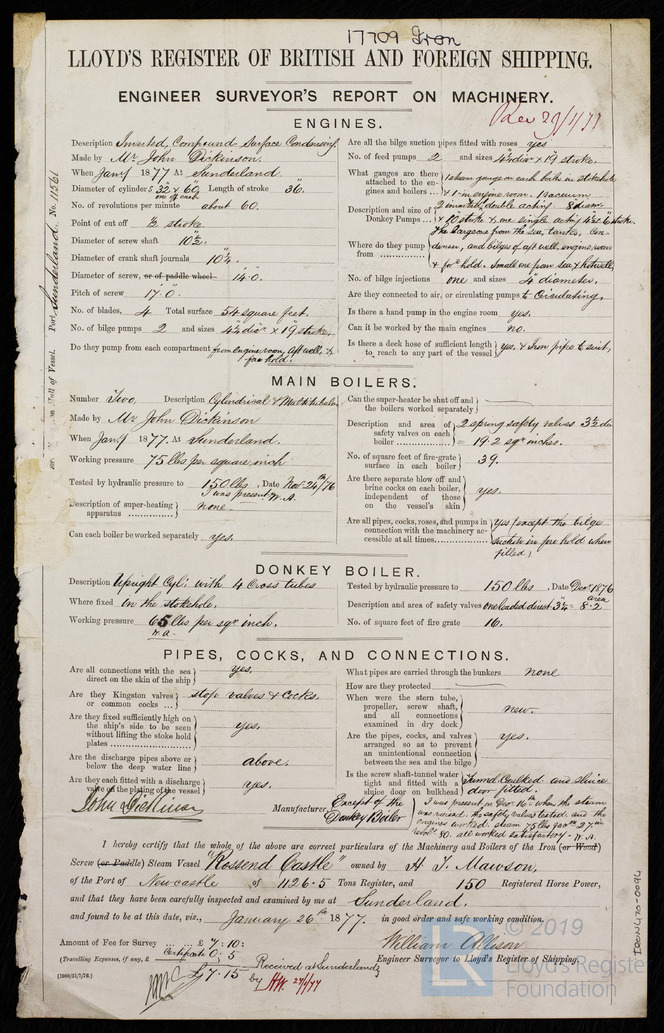 17709 Iron
LLOYD'S REGISTER OF BRITISH AND FOREIGN SHIPPING.
ENGINEER SURVEYOR'S REPORT ON MACHINERY.
Rec 29/1/77
Port Sunderland No. 11561
ENGINES.
Description Inverted, Compound Surface Condensing
Made by Mr John Dickinson.
When Jany 1877. At Sunderland.
Diameter of cylinders 32 & 60, Length of stroke 36.
one of each
No. of revolutions per minute about 60.
Point of cut off ½ stroke
Diameter of screw shaft 10½.
Diameter of crank shaft journals 10½.
Diameter of screw, or of paddle wheel 14.0.
Pitch of screw 17.0.
No. of blades, 4 Total surface 54 square feet.
No. of bilge pumps 2 and sizes 4½ dia. x 19 stroke.
Do they pump from each compartment from engine room, aft well, &
fore hold.
Are all the bilge suction pipes fitted with roses yes
No. of feed pumps 2 and sizes 4½ dia x 19 stroke.
What gauges are there
attached to the en-
gines and boilers
1 steam gauge on each boiler in stokehole
& 1 in engine room. 1 vacuum
Description and size of
Donkey Pumps
2 inverted double acting 8 diam
x 10 stroke & one single acting 4½ x 6 stroke.
Where do they pump
from
The large one from the sea, tanks, con-
denser, and bilges of aft well, engine room
& fore hold. Small one from sea & hotwell,
No. of bilge injections one and sizes 4" diameter.
Are they connected to air, or circulating pumps to Circulating.
Is there a hand pump in the engine room yes.
Can it be worked by the main engines no.
Is there a deck hose of sufficient length
to reach to any part of the vessel
yes. & Iron pipe to suit,
MAIN BOILERS.
Number Two, Description Cylindrical & Multitubular
Made by Mr John Dickinson
When Jany 1877. At Sunderland.
Working pressure 75 lbs per square inch
Tested by hydraulic pressure to 150 lbs, Date Nov 24th/76
I was present W.A.
Description of super-heating
apparatus
none
Can each boiler be worked separately yes.
Can the super-heater be shut off and
the boilers worked separately
Description and area of
safety valves on each
boiler
2 spring safety valves 3½ dia
= 19.2 sqr inches.
No. of square feet of fire-grate
surface in each boiler
39.
Are there separate blow off and
brine cocks on each boiler,
independent of those
on the vessel's skin
yes.
Are all pipes, cocks, roses, and pumps in
connection with the machinery ac-
cessible at all times
yes (except the bilge
suction in fore hold when
filled)
DONKEY BOILER.
Description Upright Cyl: with 4 Cross tubes
Where fixed in the stokehole.
Working pressure 65 lbs per sqr inch.
W.A.
Tested by hydraulic pressure to 150 lbs, Date Decr 1876
Description and area of safety valves one loaded direct 3¼ = area 8.2
No. of square feet of fire grate 16.
PIPES, COCKS, AND CONNECTIONS.
Are all connections with the sea
direct on the skin of the ship
yes.
Are they Kingston valves
or common cocks
stop valves & Cocks.
Are they fixed sufficiently high on
the ship's side to be seen
without lifting the stoke hold
plates
yes.
Are the discharge pipes above or
below the deep water line
above.
Are they each fitted with a discharge
valve on the plating of the vessel
yes.
What pipes are carried through the bunkers none
How are they protected
When were the stern tube,
propeller, screw shaft,
and all connections
examined in dry dock
new.
Are the pipes, cocks, and valves
arranged so as to prevent
an unintentional connection
between the sea and the bilge
yes.
Is the screw shaft-tunnel water
tight and fitted with a
sluice door on bulkhead
Tunnel Caulked and Sluice
door fitted.
John Dickinson Manufacturer, Except of the
Donkey Boiler
I was present in Decr 16th when the steam
was raised, the safety valves tested, and the
engines worked. steam 75 lbs
all worked satisfactory. W.A.
I hereby certify that the whole of the above are correct particulars of the Machinery and Boilers of the Iron (or Wood)
Screw (or Paddle) Steam Vessel "Rossend Castle" owned by H. T. Mawson,
of the Port of Newcastle of 1126.5 Tons Register, and 150 Registered Horse Power,
and that they have been carefully inspected and examined by me at Sunderland.
and found to be at this date, viz., January 26th 1877. in good order and safe working condition.
William Allison
Engineer Surveyor to Lloyd's Register of Shipping.
Amount of Fee for Survey £ 7 : 10 :
Certificate 0 : 5
(Travelling Expenses, if any, £
£7.15
Received at Sunderland
by 27/1/77
IRON470-0094
© 2019
LR
Lloyd's Register
Foundation